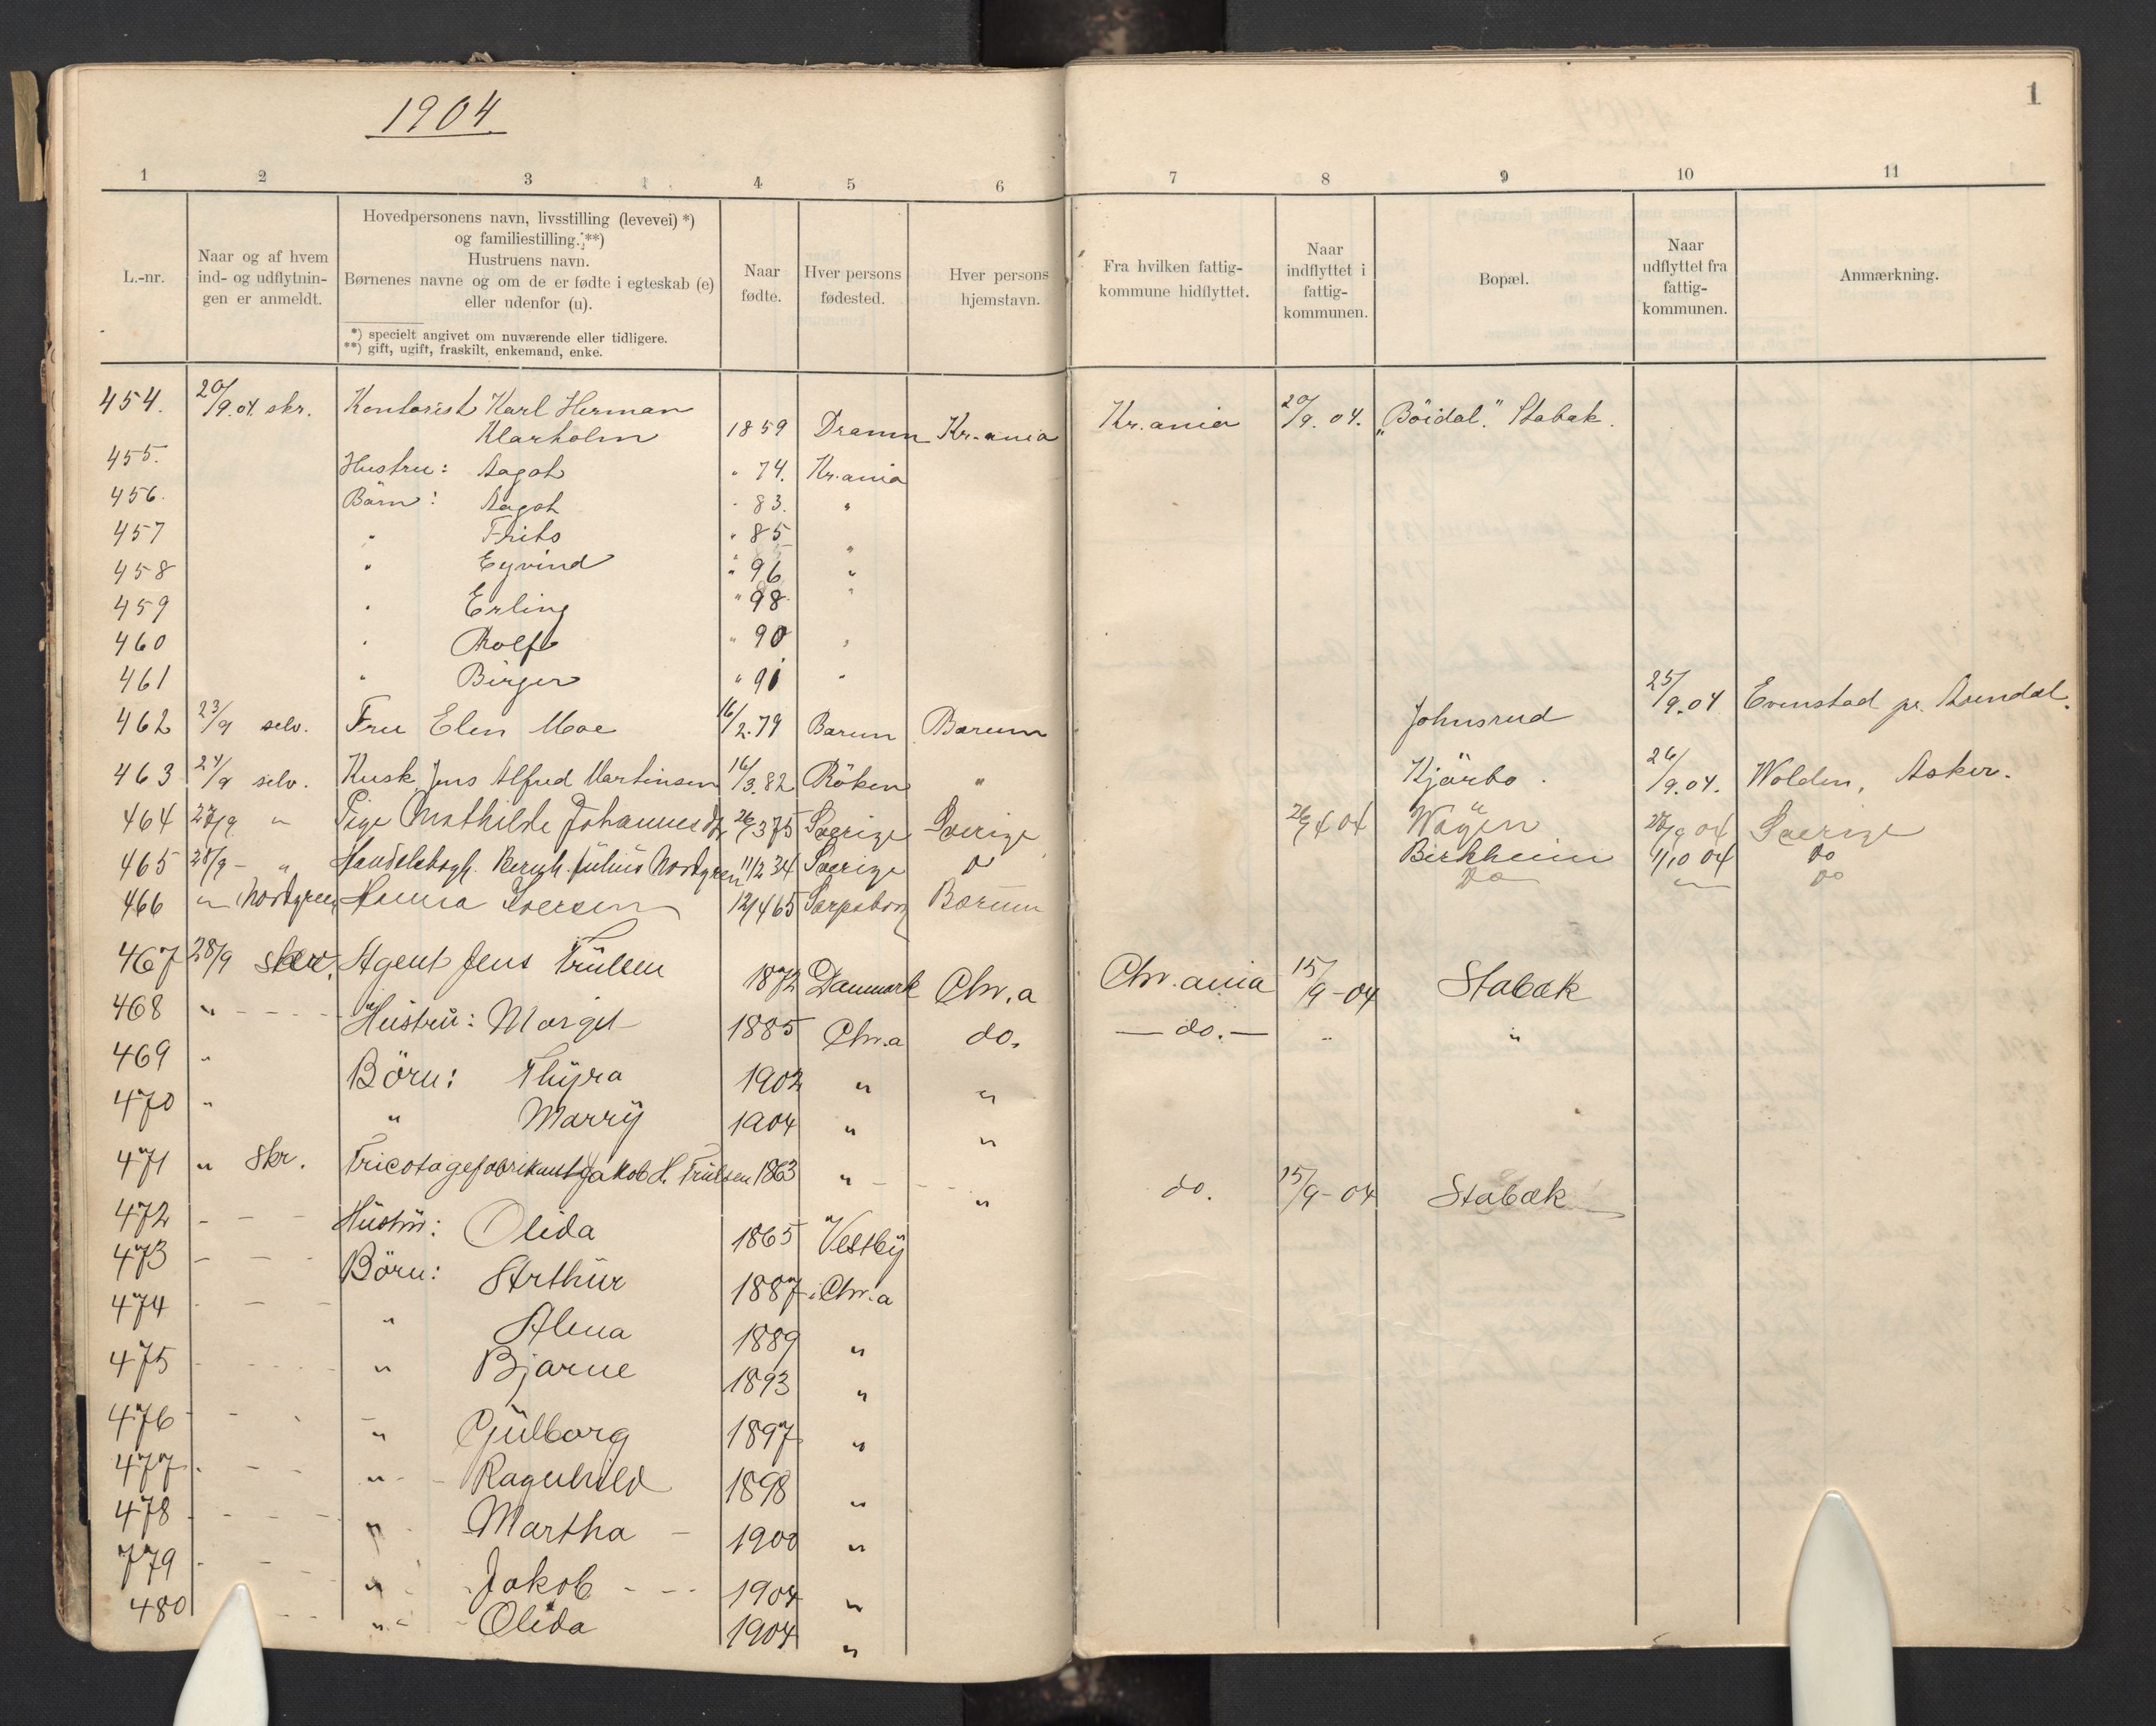 1904
1
1 2 3 4 5 6 7 8 9 10 11
L.-nr.
Naar og af hvem
ind- og udflytnin-
gen er anmeldt.
Hovedpersonens navn, livsstilling (levevei) *)
og familiestilling. **)
Hustruens navn.
Børnenes navne og om de er fødte i egteskab (e)
eller udenfor (u).
*) specielt angivet om nuværende eller tidligere.
**) gift, ugift, fraskilt, enkemand, enke.
Naar
fødte.
Hver persons
fødested.
Hver persons
hjemstavn.
Fra hvilken fattig-
kommune hidflyttet.
Naar
indflyttet i
fattig-
kommunen.
Bopæl.
Naar
udflyttet fra
fattig-
kommunen.
Anmærkning.
454. 20/9.04 skr. Kontorist Karl Herman
Klarholm 1859 Dramn Kr.ania Kr.ania 20/9.04. „Böidal." Stabak.
455. Hustru: Aagot " 74. Kr.ania
456. Börn: Aagot " 83. "
457 " Frits " 85 "
458 " Eyvind " 96 "
459 " Erling " 98 "
460 " Rolf " 90 "
461 " Birger " 91 "
462 23/9 selv. Fru Elen Moe 16/2.79 Barum Barum Johnsrud 25/9.04 Evenstad pr. Arendal.
463 24/9 selv. Kusk Jens Alfred Martinsen 16/3.82 Röken " Kjörbo. 26/9.04. Wolden, Asker.
464 27/9 " Pige Mathilde Johannesdtr 26/3 75 Sverige Sverige 26/4 04 Wøyen 28/9 04 Sverige
465 28/9 - " Handelsbogh. Bernh. Julius Nordgren 11/2 34 Sverige do Birkheim 1/10 04 do
466 " Nordgren Hanna Iversen 12/4 65 Sarpsborg Bærum do " do
467 28/9 skr. Agent Jens Trulsen 1872 Danmark Chr.a Chr.ania 15/9-04 Stabæk
468 " Hustru: Margit 1885 Chr.a do. — do. — " "
469 " Börn: Thyra 1902 " "
470 " " Marry 1904 " "
471 " Skr. Tricotagefabrikant Jakob H. Trulsen 1863 " " do. 15/9-04 Stabæk
472 - - - Hustru: Olida 1865 Vestby
473 - - - Börn: Arthur 1887 Chr.a
474 - - - " Alena 1889 "
475 - - - " Bjarne 1893 "
476 - - " Gulborg 1897 "
477 - - - " Ragnhild 1898 "
478 - - - " Martha - 1900 "
779 - - - " Jakob - - - 1904 "
480 - - " Olida 1904 "